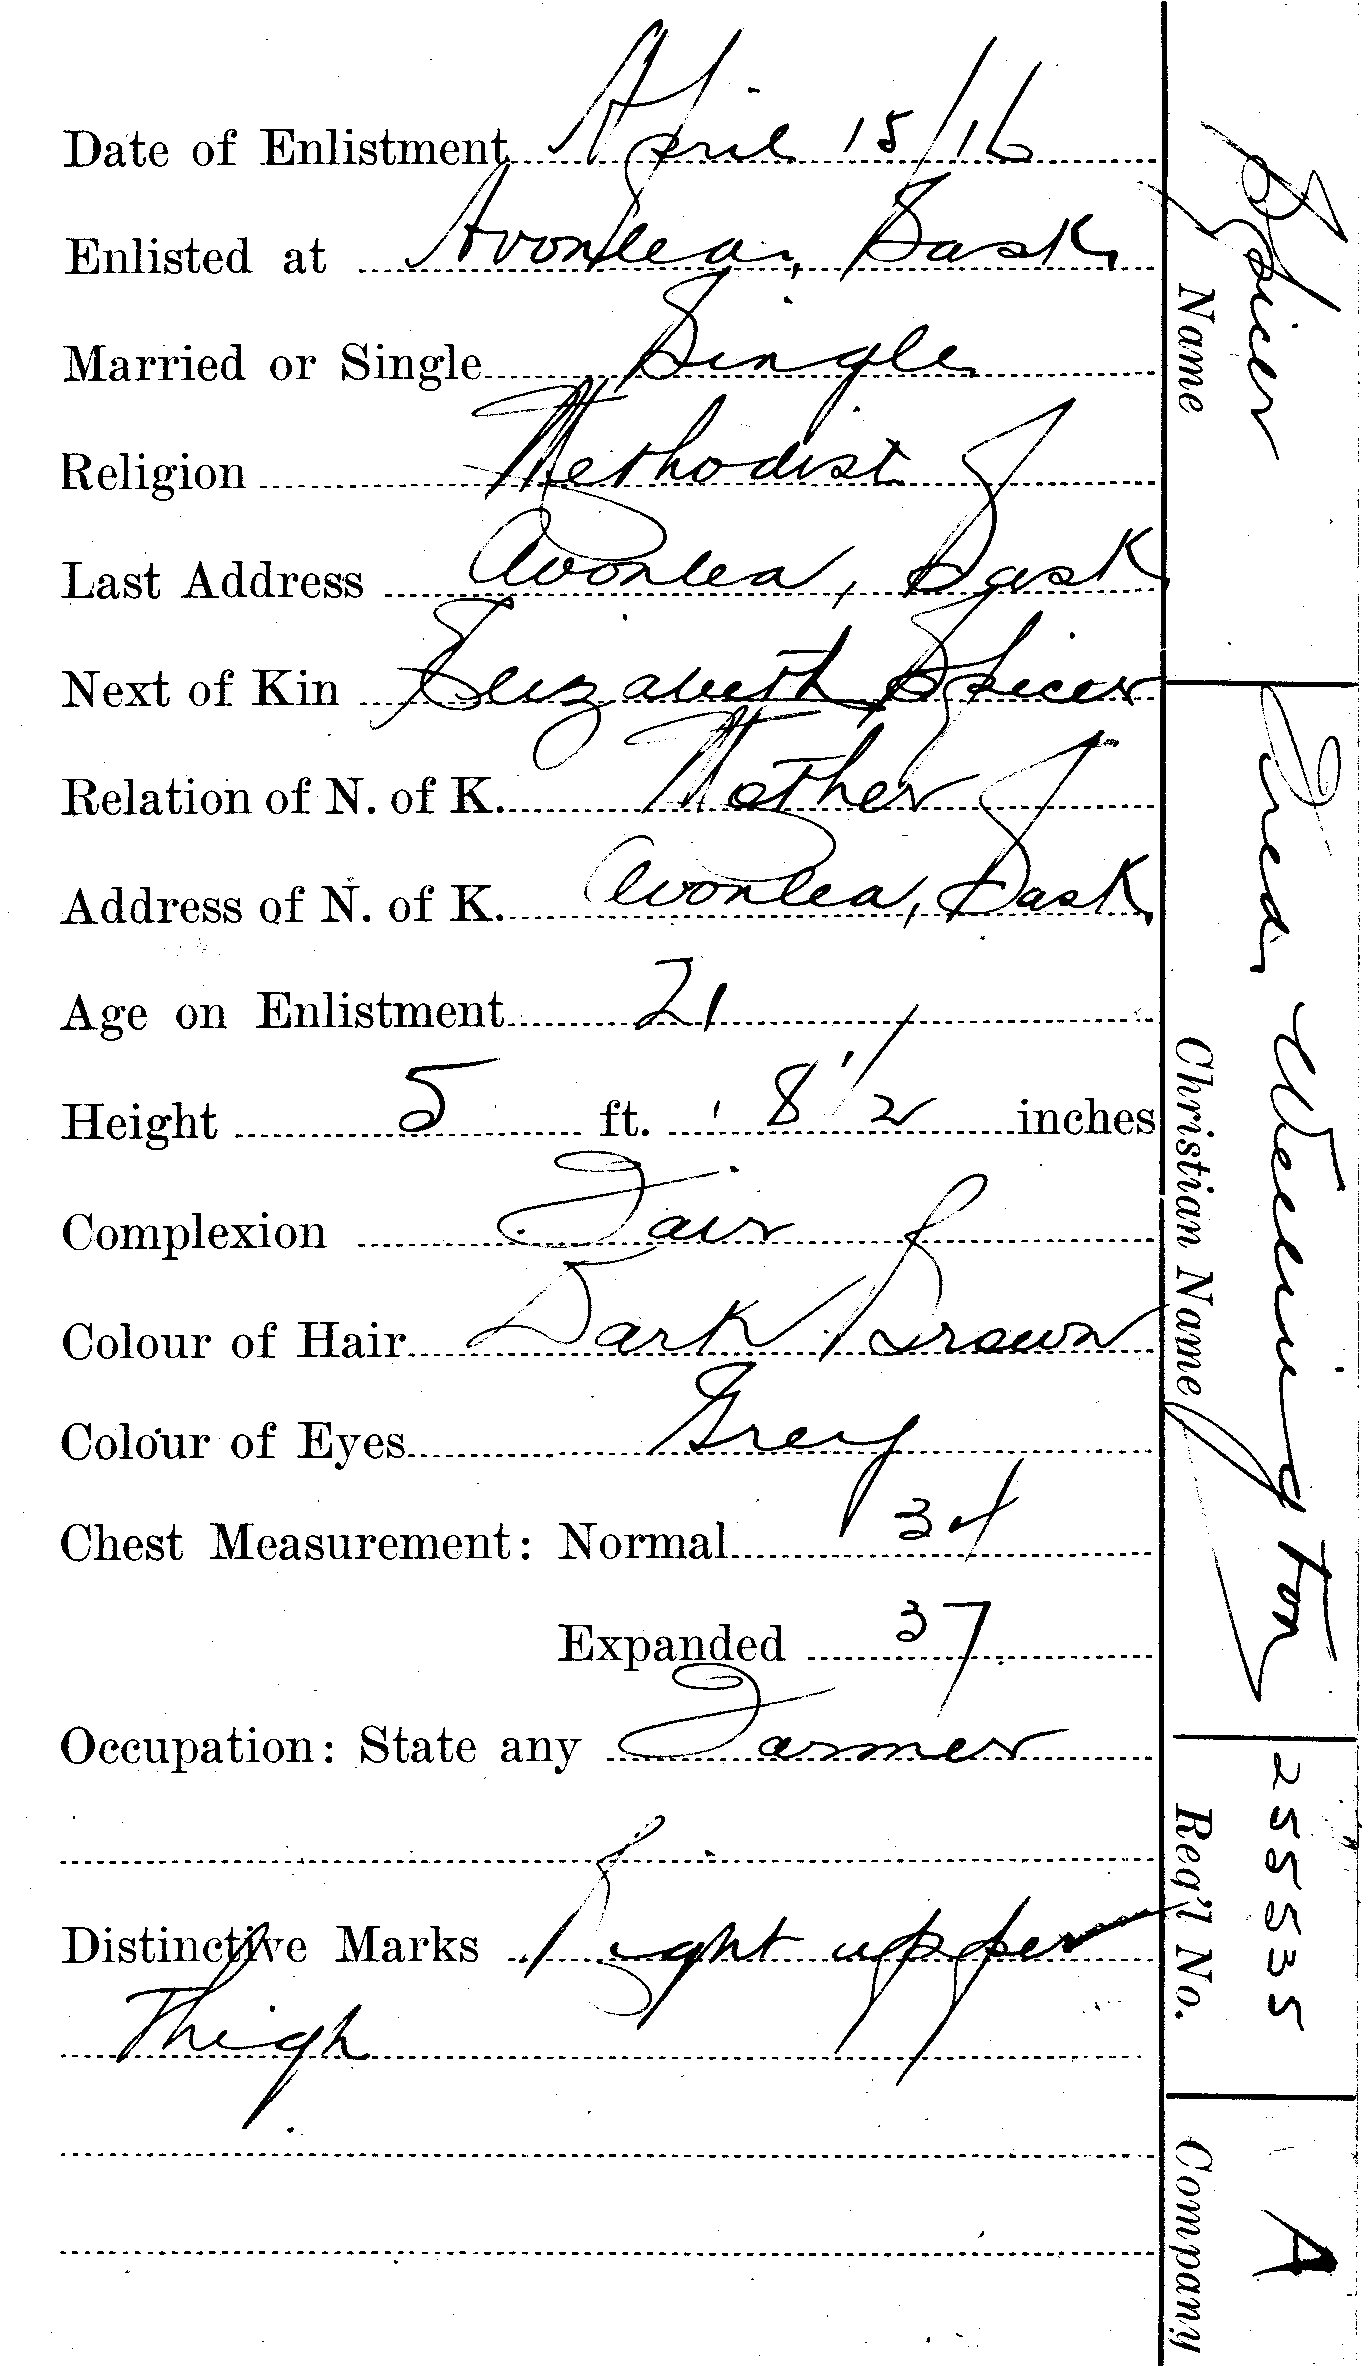 Date of Enlistment April 15/16
Enlisted at Avonlea, Sask
Married or Single Single
Religion Methodist
Last Address Avonlea, Sask
Next of Kin Elizabeth Spicer
Relation of N. of K. Mother
Address of N. of K. Avonlea, Sask
Age on Enlistment 21
Height 5 ft. 8 1/2 inches
Complexion Fair
Colour of Hair Dark Brown
Colour of Eyes Grey
Chest Measurement: Normal 34
Expanded 37
Occupation: State any Farmer
Distinctive Marks Right upper
Thigh
Spicer
Name
Fred Wellington
Christian Name
255535
Reg'l No.
A
Company